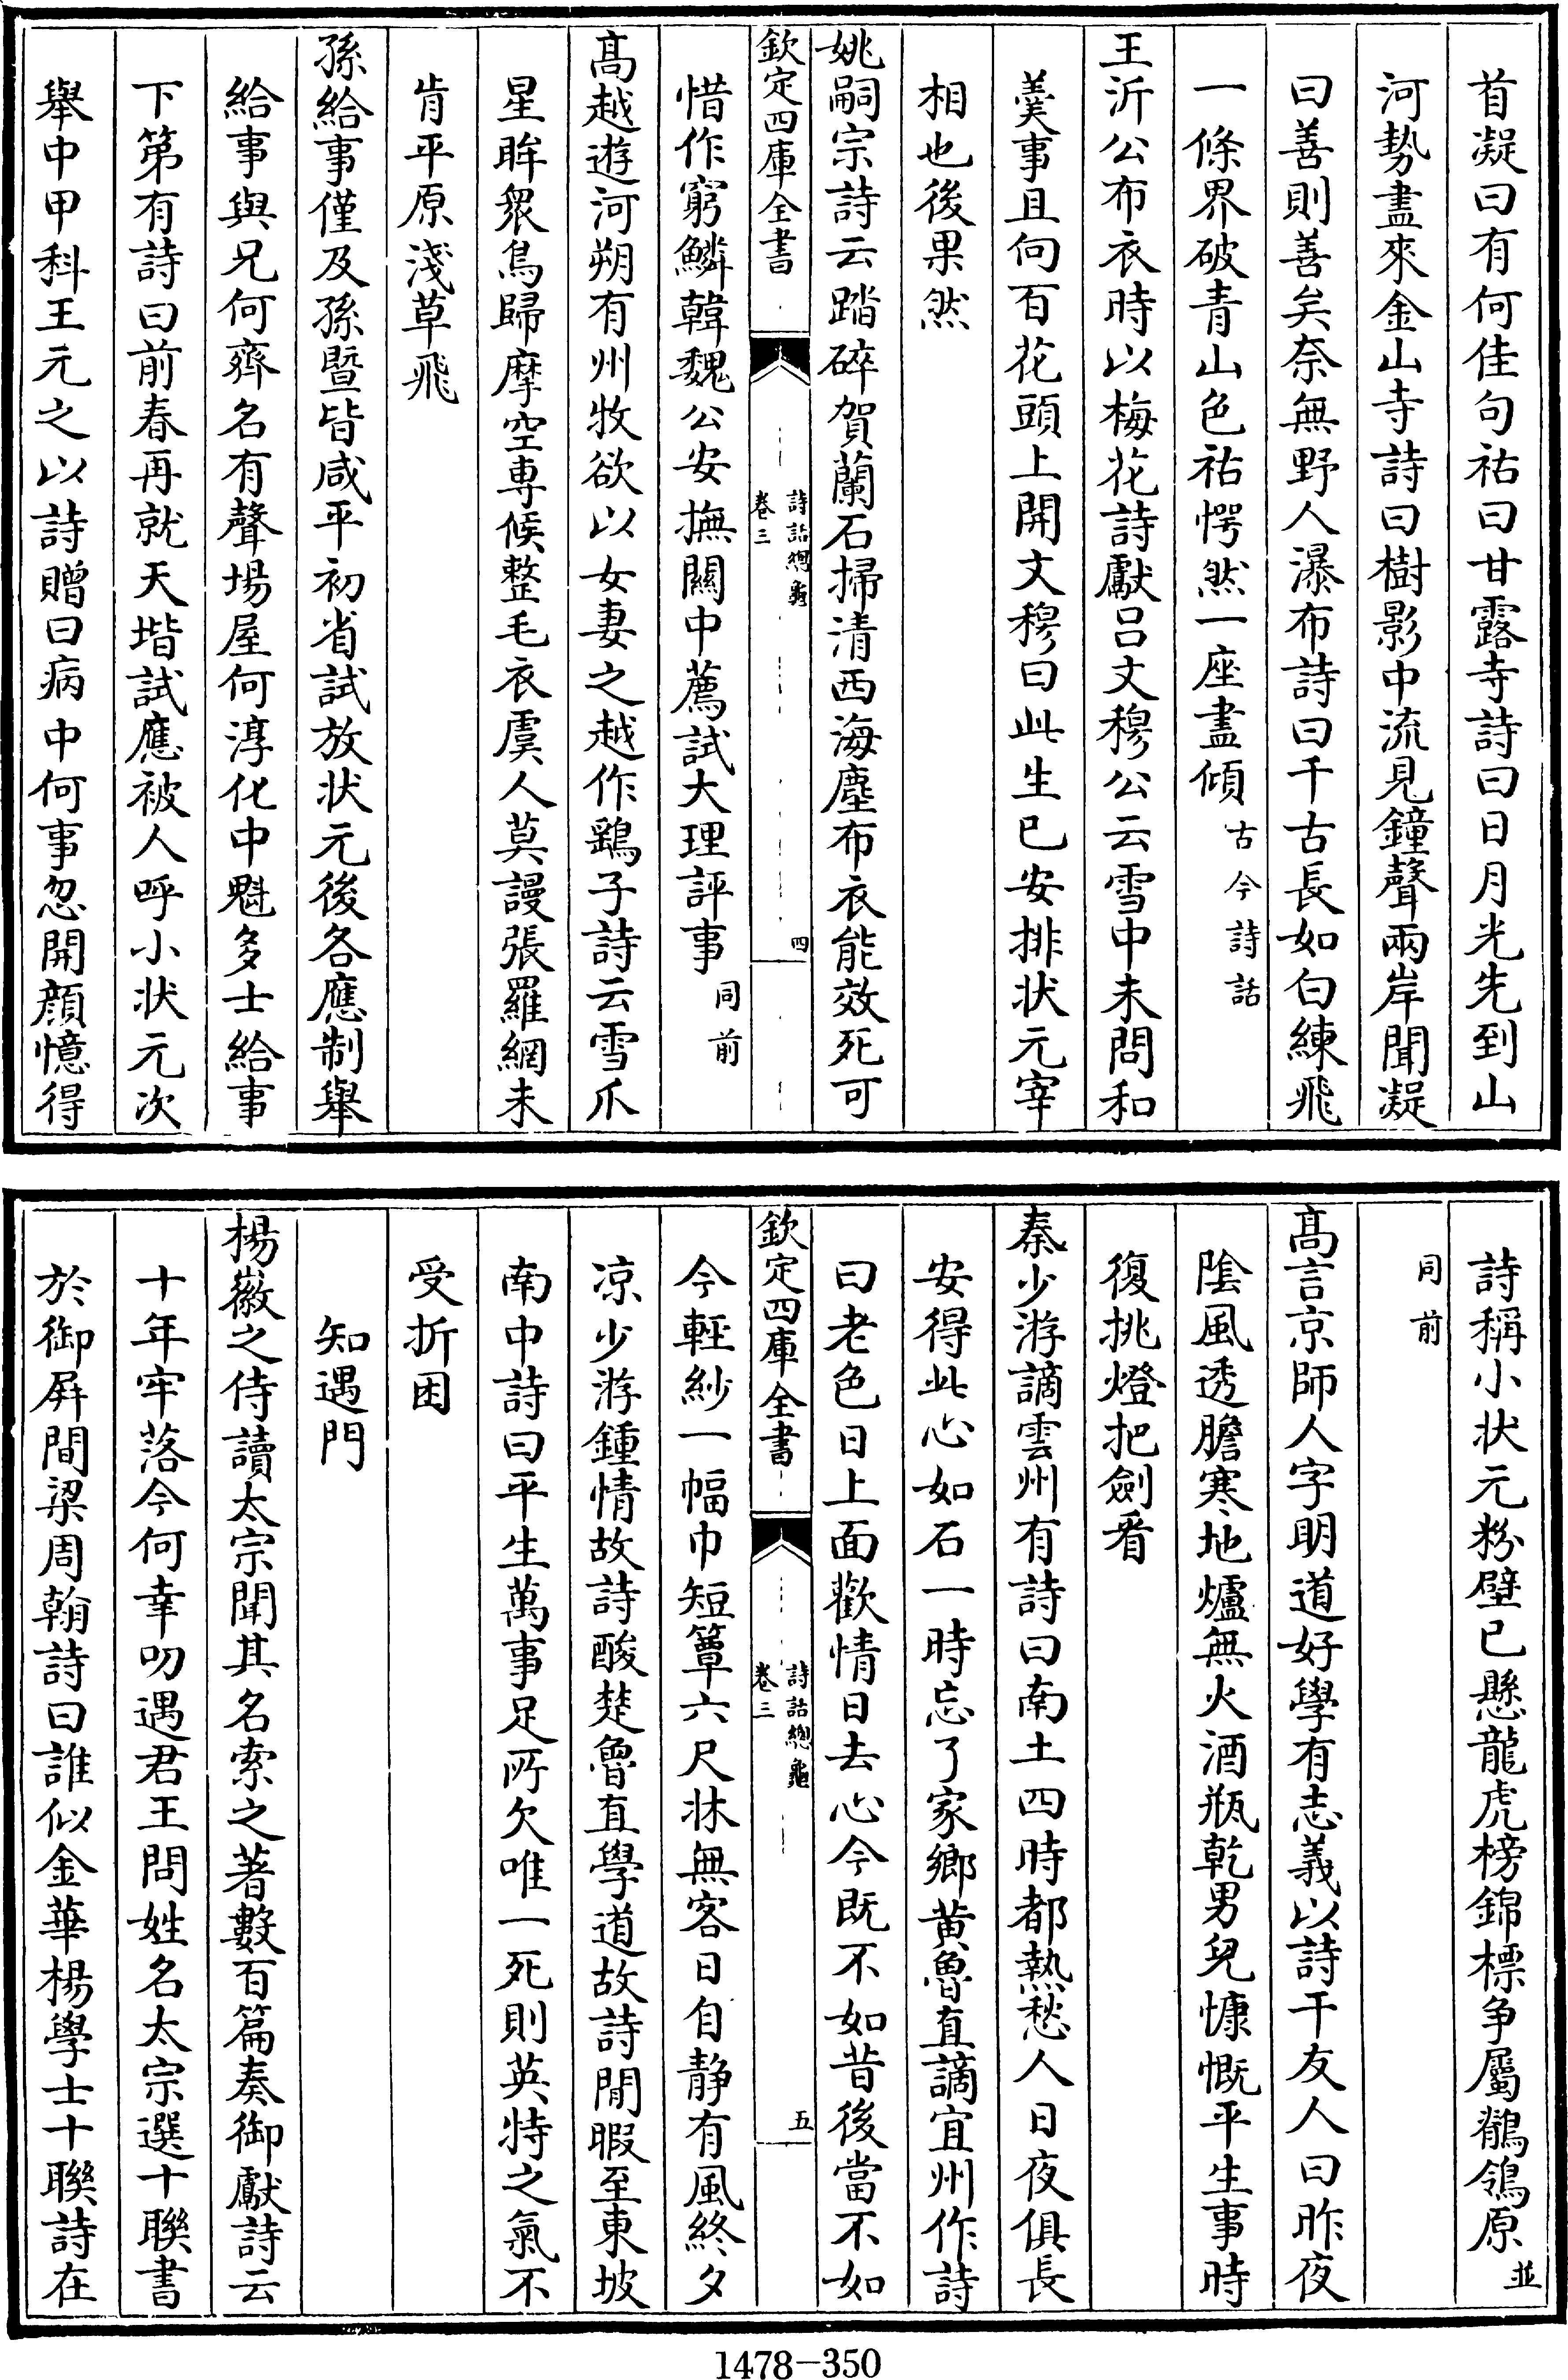 首凝曰有何佳句祜曰甘露寺詩曰日月光先到山
河勢盡來金山寺詩曰樹影中流見鐘聲兩岸聞凝
曰善則善矣奈無野人瀑布詩曰千古長如白練飛
一條界破青山色祜愕然一座盡傾古今詩話
王沂公布衣時以梅花詩獻呂文穆公云雪中未問和
羮事且向百花頭上開文穆曰此生已安排状元宰
相也後果然
姚嗣宗詩云踏碎賀蘭石掃清西海塵布衣能效死可
欽定四庫全書 詩話總龜 卷三 四
惜作窮鱗韓魏公安撫關中薦試大理評事同前
髙越遊河朔有州牧欲以女妻之越作鷂子詩云雪爪
星眸衆鳥歸摩空專候整毛衣虞人莫謾張羅網未
肯平原淺草飛
孫給事僅及孫暨皆咸平初省試放状元後各應制舉
給事與兄何齊名有聲場屋何淳化中魁多士給事
下第有詩曰前春再就天堦試應被人呼小状元次
舉中甲科王元之以詩贈曰病中何事忽開顔憶得
詩稱小状元粉壁已懸龍虎榜錦標争屬鶺鴒原並
同前
髙言京師人字明道好學有志義以詩干友人曰昨夜
陰風透膽寒地爐無火酒瓶乾男兒慷慨平生事時
復挑燈把劍看
秦少游謫雲州有詩曰南土四時都熱愁人日夜俱長
安得此心如石一時忘了家鄉黄魯直謫宜州作詩
曰老色日上面歡情日去心今既不如昔後當不如
欽定四庫全書 詩話總龜 卷三 五
今輕紗一幅巾短簟六尺牀無客日自静有風終夕
凉少游鍾情故詩酸楚魯直學道故詩閒暇至東坡
南中詩曰平生萬事足所欠唯一死則英特之氣不
受折困
知遇門
楊徽之侍讀太宗聞其名索之著數百篇奏御獻詩云
十年牢落今何幸叨遇君王問姓名太宗選十聯書
於御屏間梁周翰詩曰誰似金華楊學士十聯詩在
1478-350